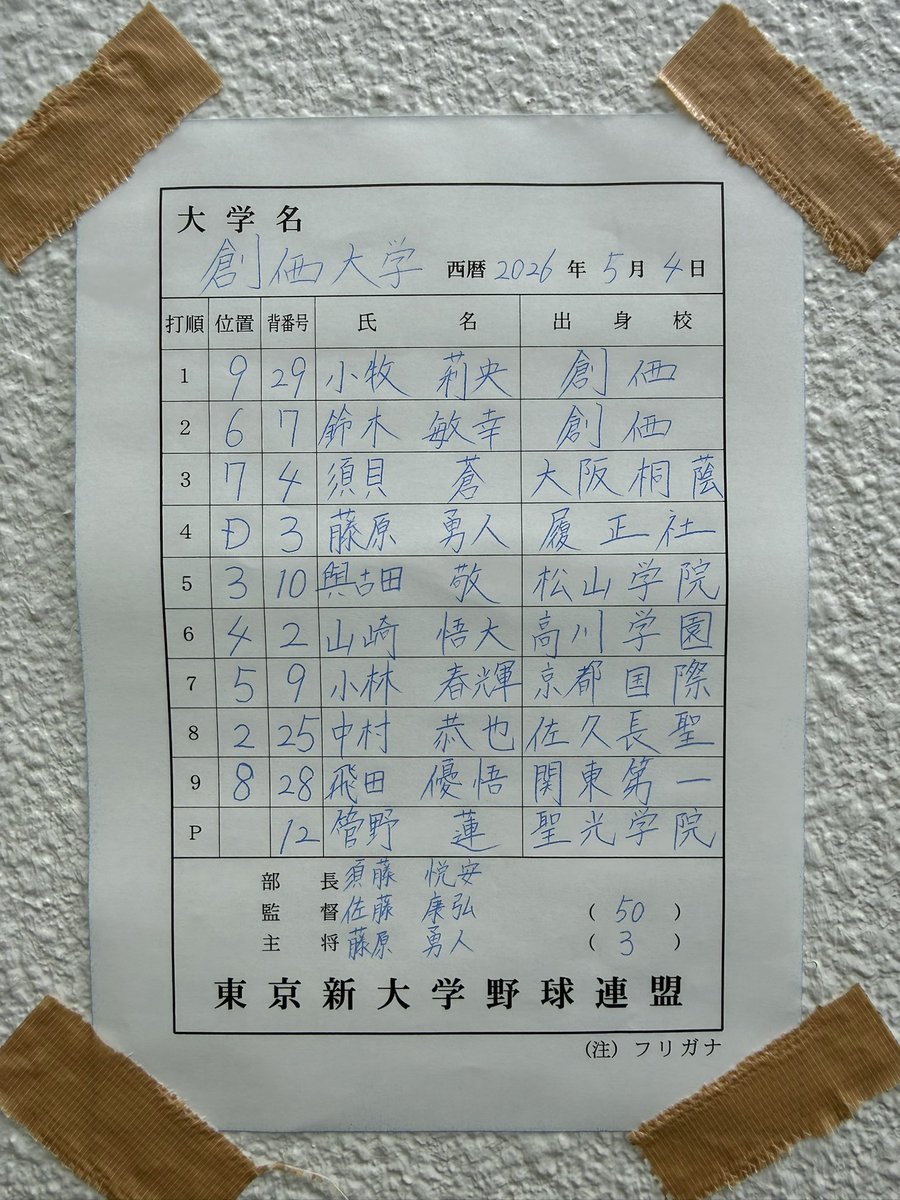 大学名
創価大学 西暦 2026 年 5 月 4 日
打順 位置 背番号 氏名 出身校
1 9 29 小牧 莉央 創価
2 6 7 鈴木 敏幸 創価
3 7 4 須貝 蒼 大阪桐蔭
4 D 3 藤原 勇人 履正社
5 3 10 與古田 敬 松山学院
6 4 2 山崎 悟大 高川学園
7 5 9 小林 春輝 京都国際
8 2 25 中村 恭也 佐久長聖
9 8 28 飛田 優悟 関東第一
P 12 管野 蓮 聖光学院
部長 須藤 悦安
監督 佐藤 康弘 ( 50 )
主将 藤原 勇人 ( 3 )
東京新大学野球連盟
(注) フリガナ